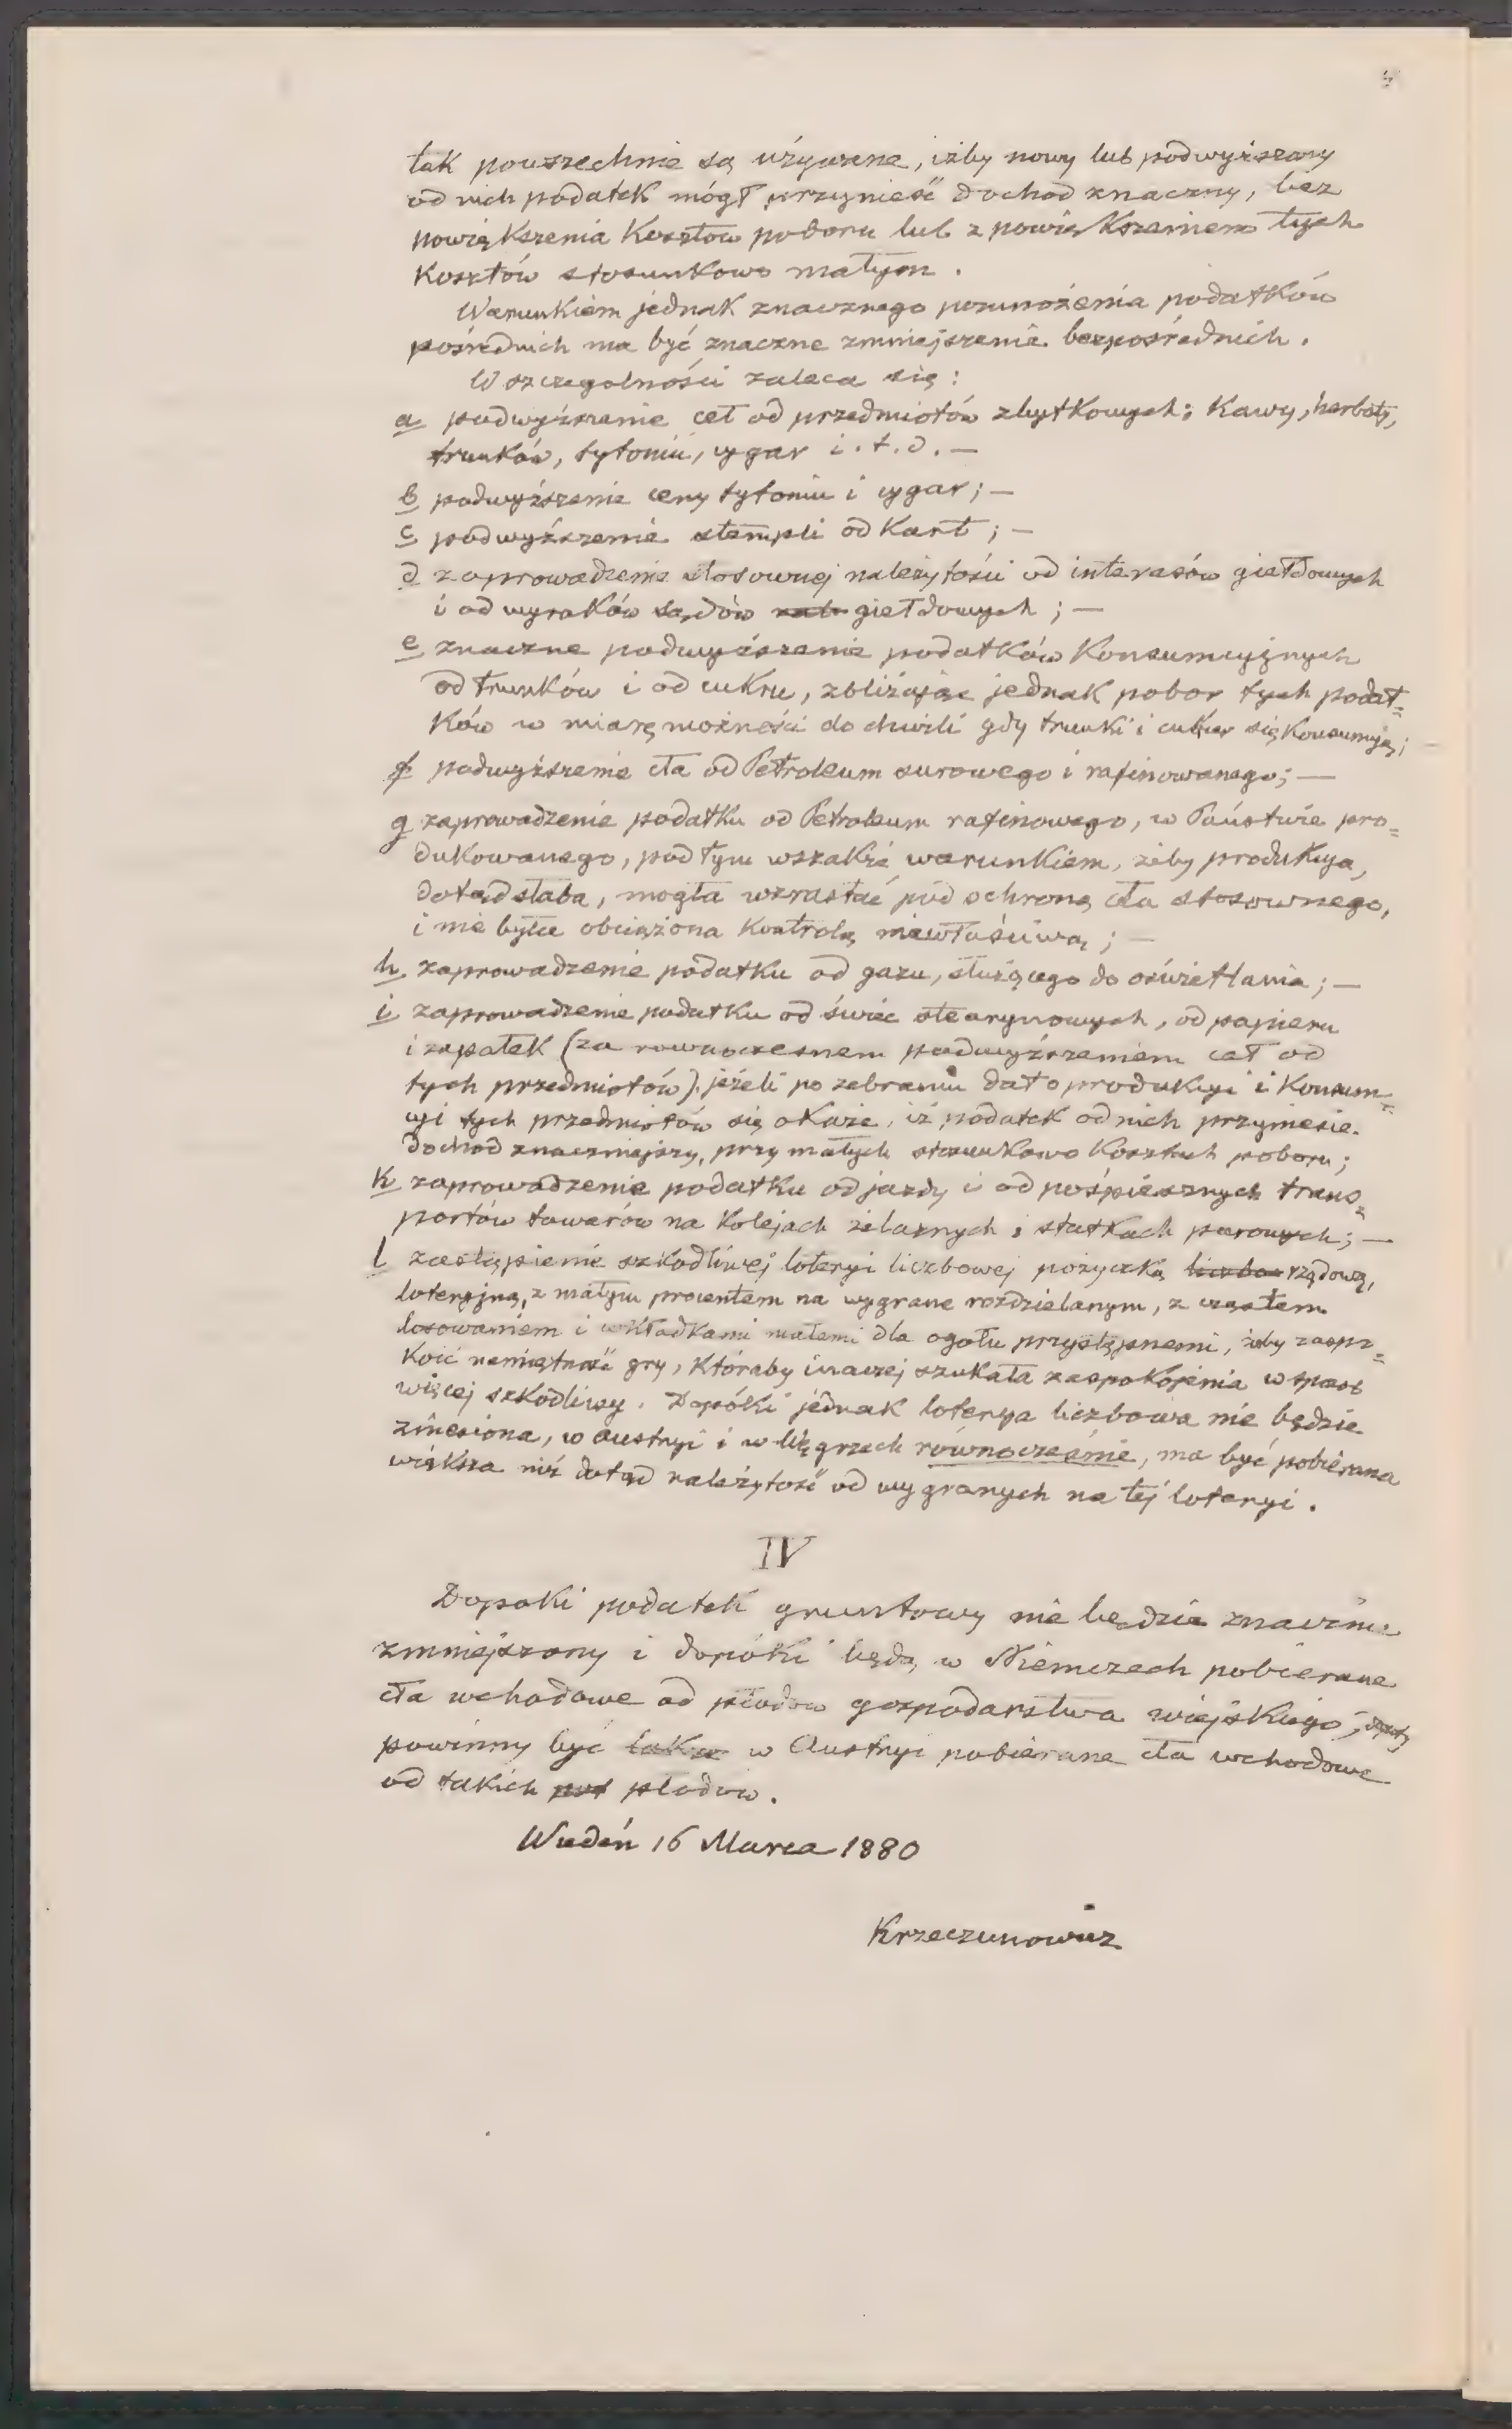 tak powszechnie są używane, iżby nowy lub podwyższony
od nich podatek mógł przynieść dochod znaczny, bez
powiększenia Kosztów poboru lub z powiększeniem tych
Kosztów stosunkowo małym.
Warunkiem jednak znacznego pomnożenia podatków
pośrednich ma być znaczne zmniejszenie bezpośrednich.
W szczegolności zaleca się:
a podwyższenie ceł od przedmiotów zbytkowych; Kawy, herbaty,
trunków, tytoniu, cygar i.t.d. —
b podwyższenie ceny tytoniu i cygar; —
c podwyższenie stempli od Kart; —
d zaprowadzenie stosownej należytości od interesów giełdowych
i od wyroków sądów giełdowych; —
e znaczne podwyższenie podatków Konsumcyjnych
od trunków i od cukru, zbliżając jednak pobor tych podat=
ków w miarę możności do chwili gdy trunki i cukier się Konsumują; —
f podwyższenie cła od Petroleum surowego i rafinowanego; —
g zaprowadzenie podatku od Petroleum rafinowego, w Państwie pro=
dukowanego, pod tym wszakże warunkiem, żeby produkcya,
dotąd słaba, mogła wzrastać pod ochroną cła stosownego,
i nie była obciążona Kontrolą niewłaściwą; —
h zaprowadzenie podatku od gazu, służącego do oświetlania; —
i zaprowadzenie podatku od świec stearynowych, od papieru
i zapałek (za rownoczesnem podwyższeniem ceł od
tych przedmiotów), jeżeli po zebraniu dat o produkcyi i Konsum=
cyi tych przedmiotów się okaże, iż podatek od nich przyniesie
dochod znaczniejszy, przy małych stosunkowo Kosztach poboru;
k zaprowadzenie podatku od jazdy i od pośpiesznych trans=
portów towarów na Kolejach żelaznych i statkach parowych; —
l zastąpienie szkodliwej loteryi liczbowej pożyczką liczbo rządową,
loteryjną, z małym procentem na wygrane rozdzielanym, z częstem
losowaniem i wkładkami małemi dla ogołu przystępnemi, żeby zaspo=
Koić namiętność gry, któraby inaczej szukała zaspokojenia w sposob
więcej szkodliwy. Dopóki jednak loterya liczbowa nie będzie
zniesiona, w Austryi i w Węgrzech równocześnie, ma być pobierana
większa niż dotąd należytość od wygranych na tej loteryi.
IV
Dopoki podatek gruntowy nie będzie znacznie
zmniejszony i dopóki będą w Niemczech pobierane
cła wchodowe od płodow gospodarstwa wiejskiego,
powinny być także w Austryi pobierane cła wchodowe
od takich płodow.
Wiedeń 16 Marca 1880
Krzeczunowicz